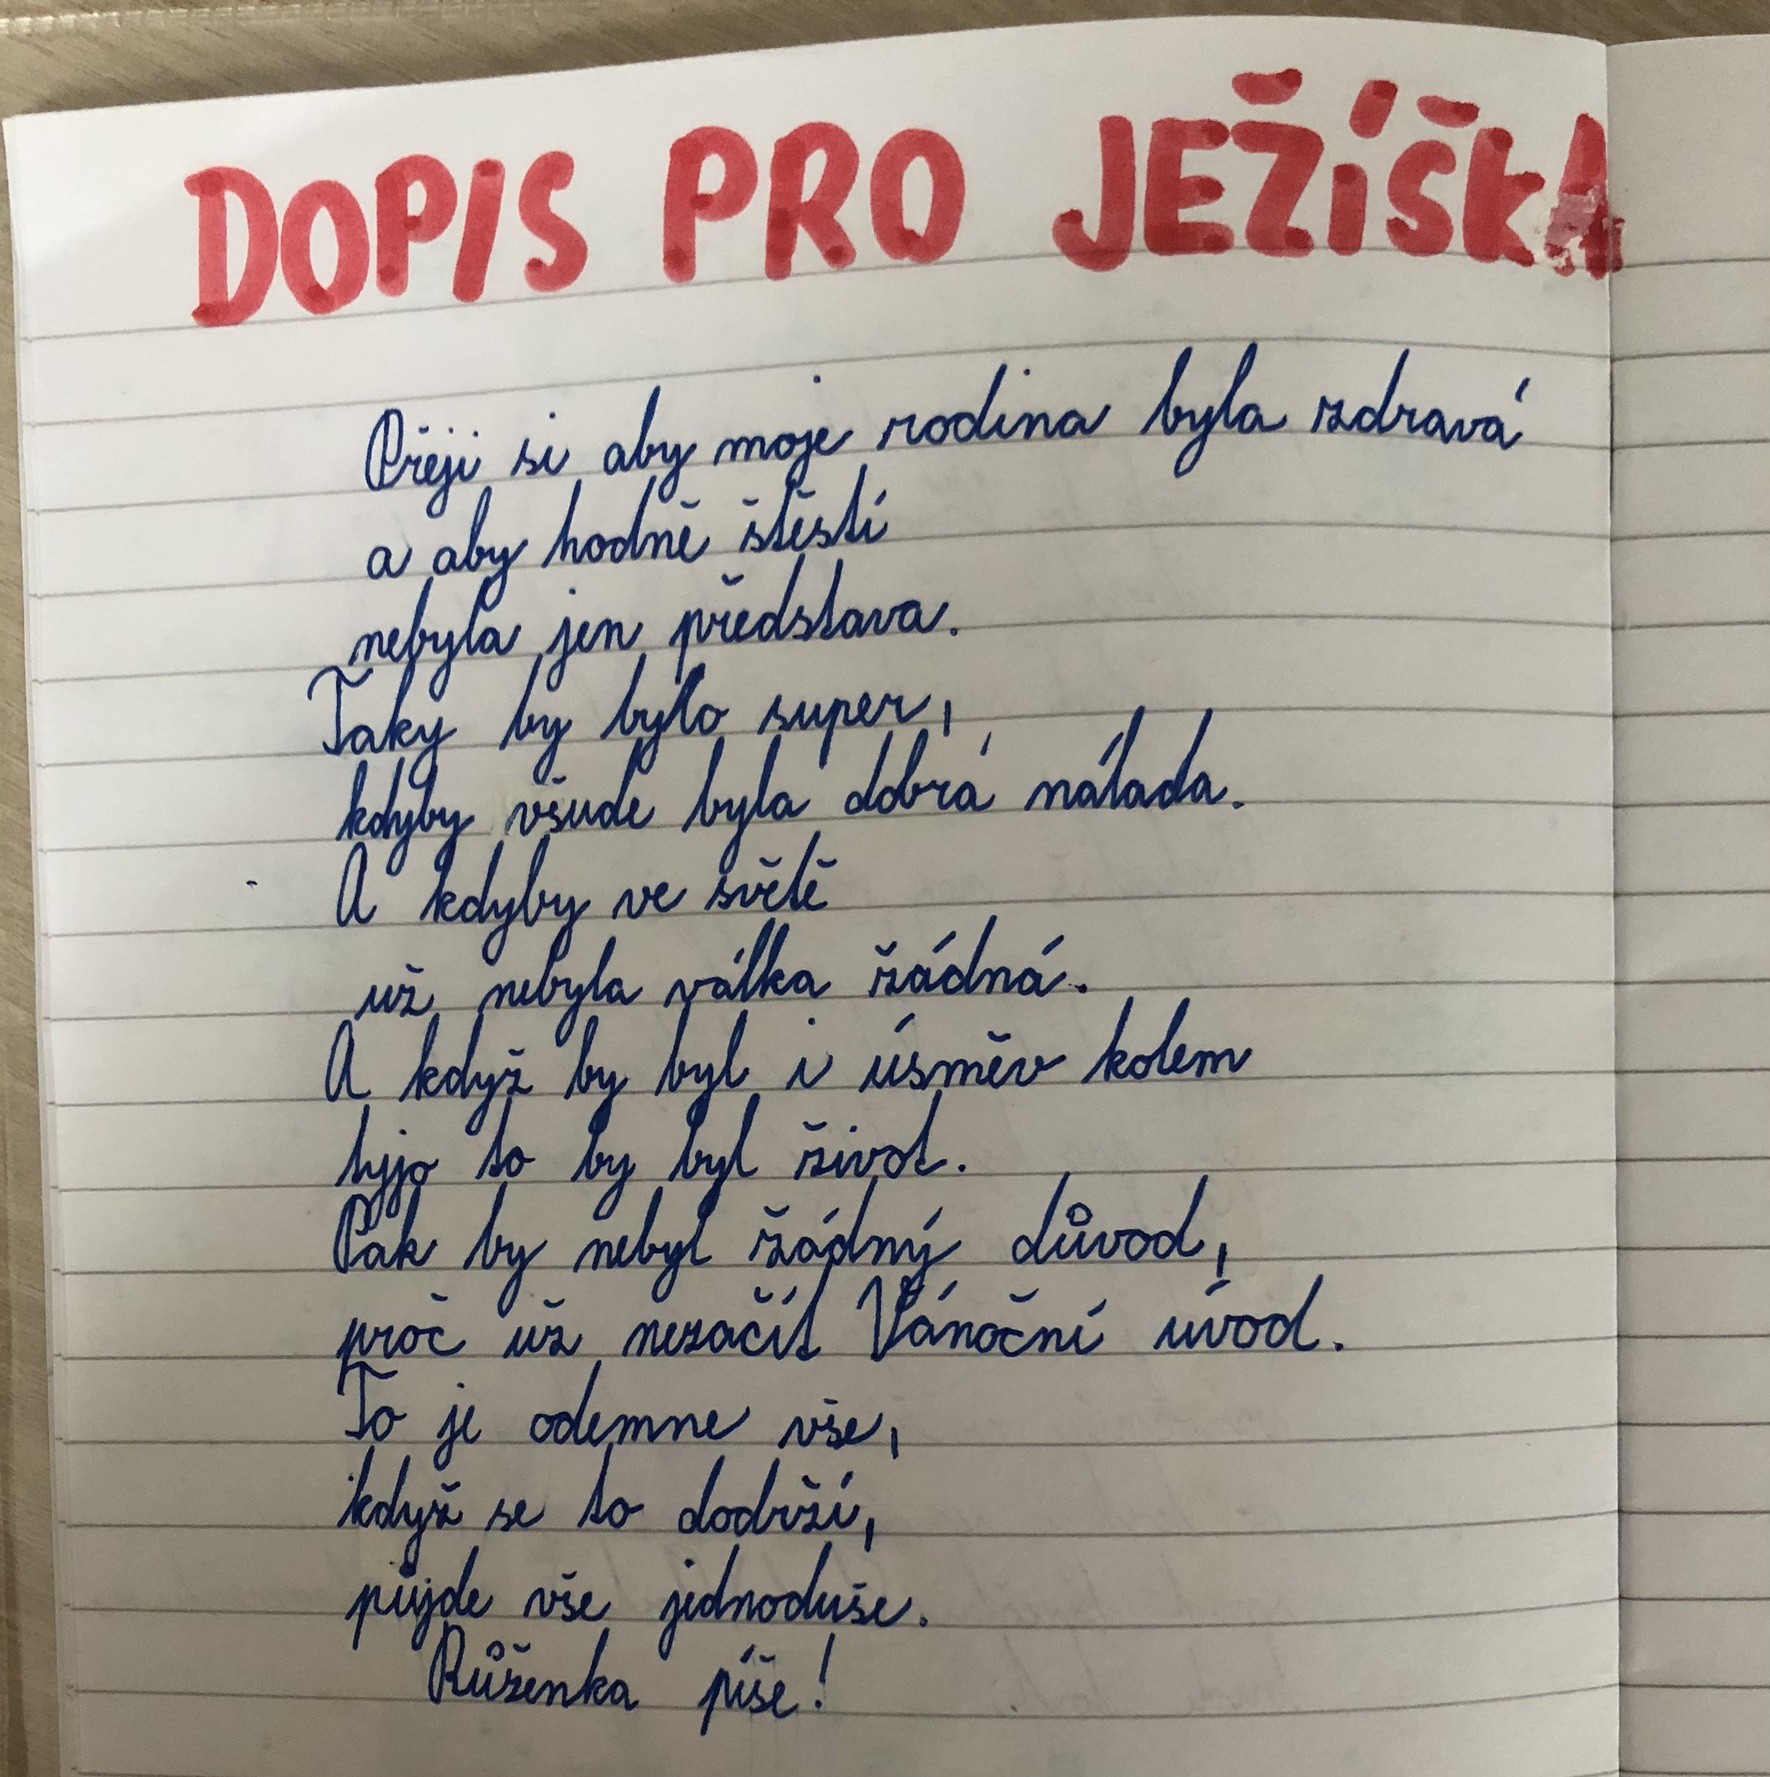 DOPIS PRO JEŽÍŠKA
Přeji si aby moje rodina byla zdravá
a aby hodně štěstí
nebyla jen představa.
Taky by bylo super,
kdyby všude byla dobrá nálada.
A kdyby ve světě
už nebyla válka žádná.
A když by byl i úsměv kolem
tyjo to by byl život.
Pak by nebyl žádný důvod,
proč už nezačít Vánoční úvod.
To je odemne vše,
když se to dodrží,
půjde vše jednoduše.
Růženka píše!